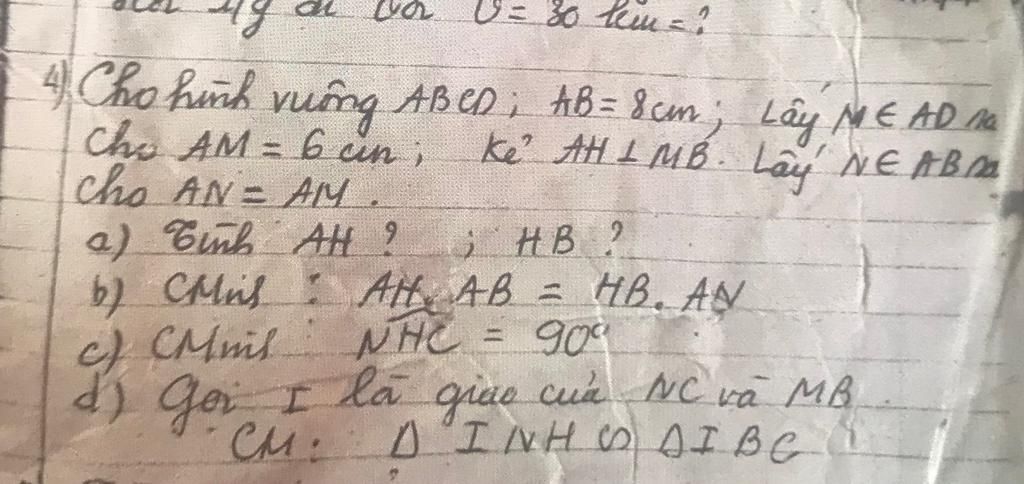 đi với V = 30 km = ?
4) Cho hình vuông ABCD; AB = 8cm; Lấy M ∈ AD sa
Cho AM = 6 cm; Kẻ AH ⊥ MB. Lấy N ∈ AB sa
Cho AN = AM.
a) Tính AH ? ; HB ?
b) CMinh : AH. AB = HB. AN
c) CMinh : NHC = 90º
d) Gọi I là giao của NC và MB.
CM: Δ INH ∽ ΔIBC